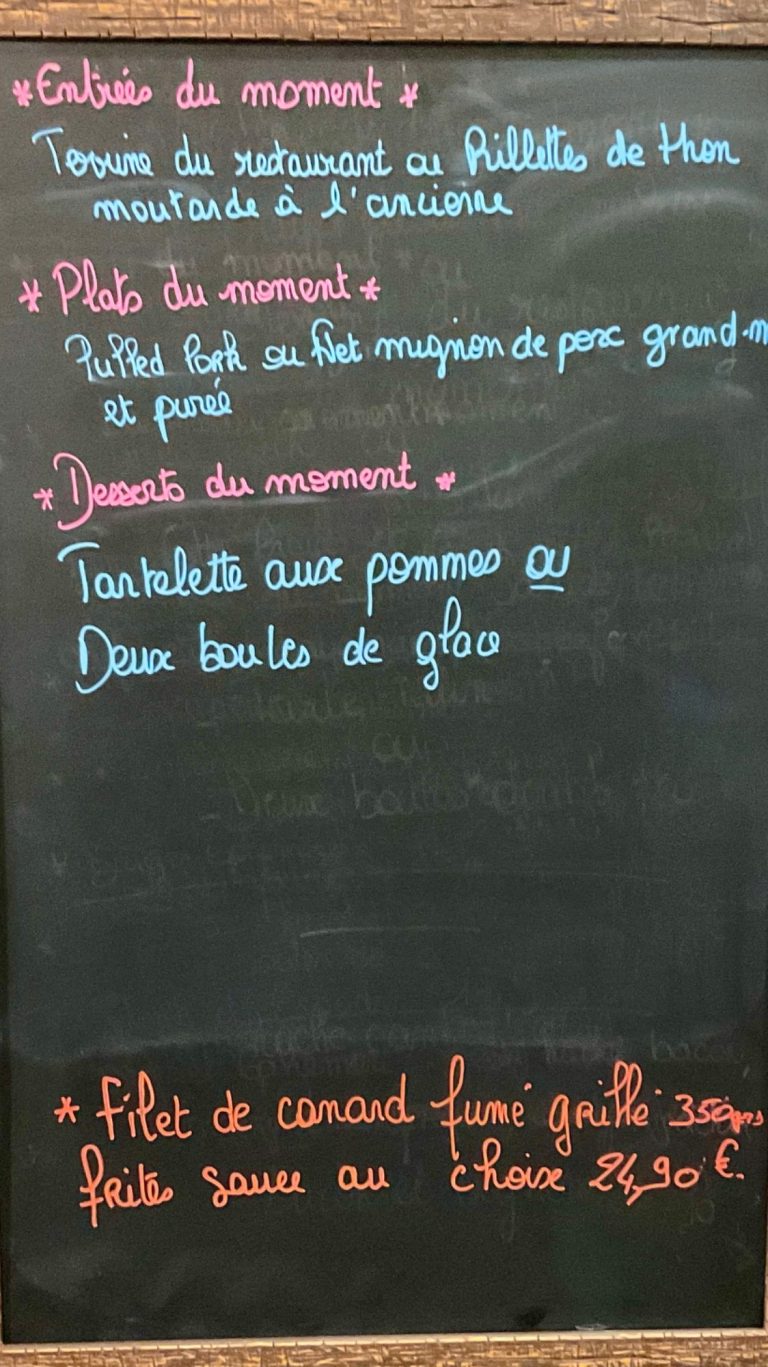 *Entrées du moment *
Terrine du restaurant ou Rillettes de thon
moutarde à l'ancienne
* Plats du moment *
Pulled Pork ou filet mignon de porc grand-m
et purée
* Desserts du moment *
Tartelette aux pommes ou
Deux boules de glace
* Filet de canard fumé grillé 350grs
frites sauce au choix 24,90 €.